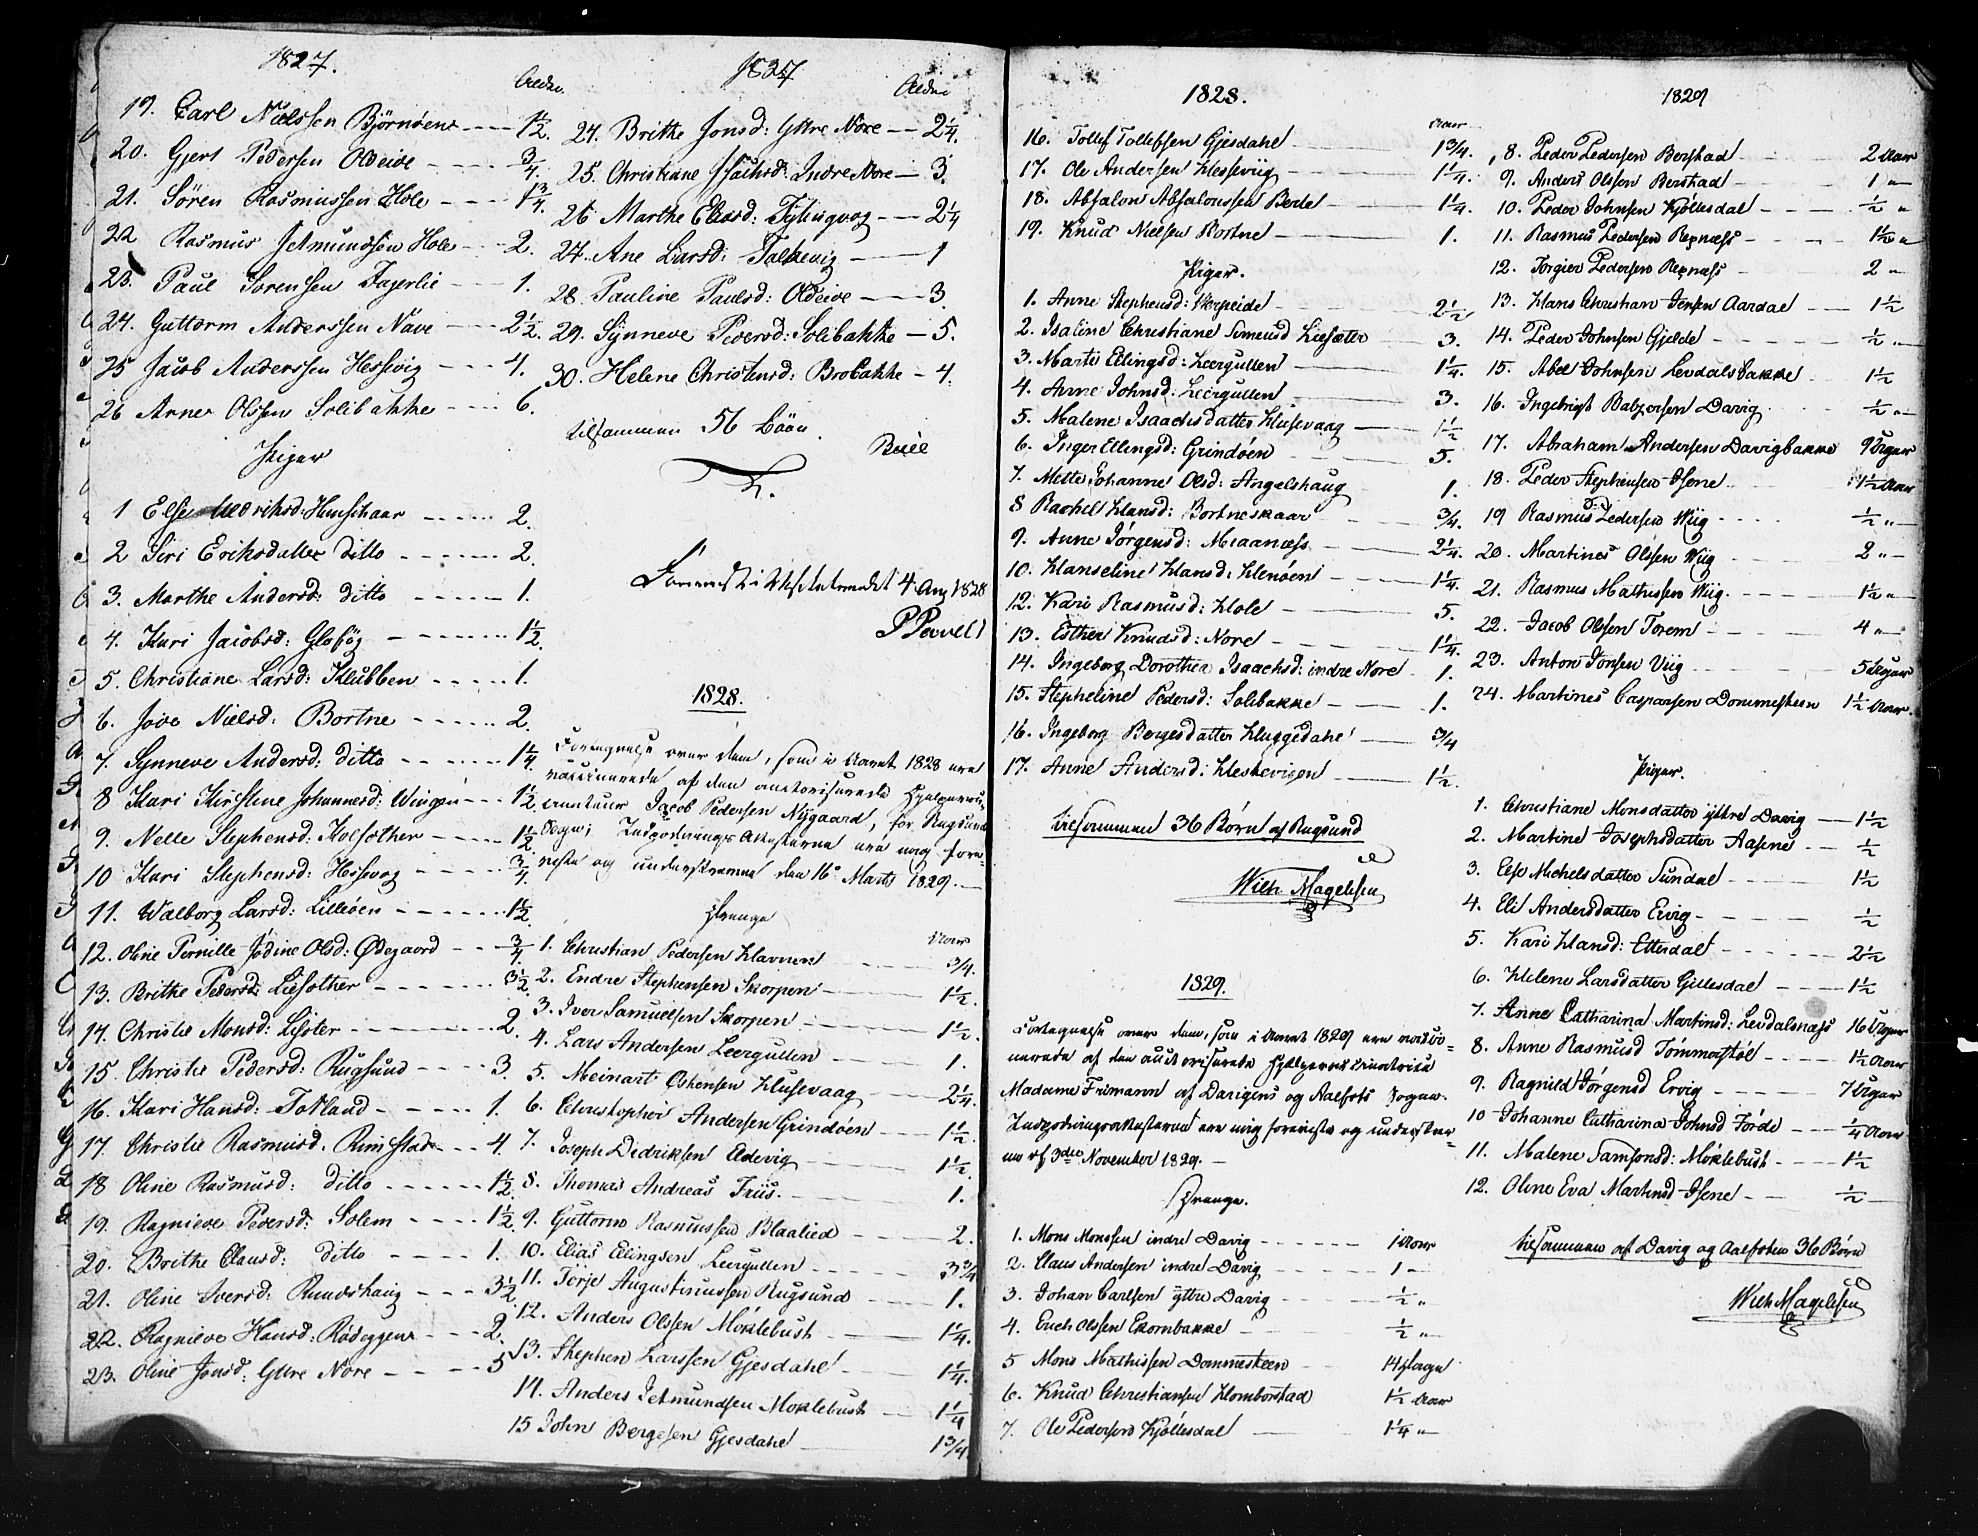 1827.
Alder.
19. Carl Nielssen Björnöen 1 1/2.
20. Gjert Pedersen Oldeide 3/4.
21. Sören Rasmussen Hole 1 3/4.
22 Rasmus Jetmundssen Hole 2.
23. Paul Sörenssen Fagerlie 1.
24. Guttorm Anderssen Nave 2 1/2.
25 Jacob Anderssen Hessevig 4.
26 Arner Olssen Solibakke 6.
Piger
1 Else Hunskaar 2.
2 Siri Eriksdatter ditto 2.
3. Marthe Andersd: ditto 1.
4. Kari Jacobsd: 1 1/2.
5. Christiane Larsd: Klubben 1.
6. Nielsd: Bortne 2.
7. Synneve Andersd: ditto 1 1/4
8 Kari Kirstene Johannesd: Wingen 1 1/2
9. Nelle Stephensd: 1 1/2
10 Kari Stephensd: 3/4.
11. Walborg Larsd: Lilleöen 1 1/2.
12. Oline Pernille Jödine Olsd: Ödegaard 3/4.
13. Brithe Pedersd: 3 1/2.
14. Christie Monsd: 2.
15. Christie Pedersd: Rugsund 3.
16. Kari Hansd: Totland 1.
17. Christie Rasmusd. 4
18 Oline Rasmusd: ditto 1 1/2
19. Ragnilde Pedersd: Solem 1 1/2
20. Brithe Clausd: ditto 1.
21. Oline Iversd: 3 1/2
22. Ragnilde Hansd: Rödeggen 2.
23. Oline Jonsd: Yttre Nore 5
1827
Alder
24. Brithe Jonsd: Yttre Nore 2 1/4.
25. Christiane Isachsd: Indre Nore 3.
26 Marthe Eliasd: 2 1/4
27. Ane Larsd: 1
28. Pauline Paulsd: Oldeide 3.
29. Synneve Pedersd: Solibakke 5.
30. Helene Christensd: Brobakke 4.
tilsammen 56 Börn
Bull
4 Aug 1828
1828.
Fortegnelse over dem, som i Aaret 1828 ere
vaccinerede af den autoriserede
Jacob Pedersen Nygaard, for Rugsund
Sogn; ere mig fore-
viste og understrevne den 16de Marts 1829.
Drenge
Aar
1. Christian Pedersen Havnen 3/4.
2. Endre Stephensen Skorpen 1 1/2.
3. Iver Samuelsen Skorpen 1 1/2.
4. Lars Andersen Leergullen 1.
5. Meinart Husevaag 2 1/4.
6. Christopher Andersen Grindöen 1 1/2.
7. Joseph Didriksen 1 1/2.
8. Thomas Andreas Friis. 1.
9. Guttorm Rasmussen Blaalied 2.
10. Elias Ellingsen Leergullen 3 3/4
11. Törje Augustinussen Rugsund 1.
12. Anders Olssen Möklebust 1 1/4.
13. Stephen Larssen Gjesdahl 1 1/4.
14. Anders Jetmundsen Moklebust 1 1/4
15 John Bergesen Gjesdahl 1 3/4
1828.
Aar
16. Tollef Tollefsen Gjesdahl 1 3/4.
17. Ole Andersen Hessevig 1 1/4.
18. Absalon Absalonssen Berle 1 1/4.
19. Knud Nielsen Bortne 1.
Piger.
1. Anne Stephensd: 2 1/2
2. Isaline Christiane Simensd 3.
3. Marte Ellingsd: Leergullen 1 1/4.
4. Anne Johnsd: Leergullen 3.
5. Malene Isaachsdatter Husevaag 1 1/2
6. Inger Ellingsd: Grindöen 5.
7. Mette Johanne Olsd: Angelshaug 1.
8 Rachel Hansd: Bortneskaar 3/4.
9. Anne Jörgensd: 2 1/4.
10. Hanseline Hansd: Henöen 1 1/4.
12. Kari Rasmusd: Hole 5.
13. Esther Knudsd: Nore 1 1/4.
14. Ingeborg Dorothea Isaachsd: indre Nore 1.
15. Stepheline Pedersd: Solibakke 1.
16. Ingeborg Bergesdatter 3/4
17. Anne Andersd: 1 1/2.
tilsammen 36 Börn af Rugsund
Wilh. Magelssen
1829.
Fortegnelse over dem, som i Aaret 1829 ere vacci-
nerede af den auctoriserede
Madame Frimann af Davigens og Aalfots Sogne.
ere mig foreviste og understrev-
ne d 3die November 1829.
Drenge.
1. Mons Monssen indre Davig 1 Aar
2. Claus Andersen indre Davig 1 "
3. Johan Carlsen yttre Davig 1/2 "
4. Erich Olssen Ekornbakke 1/2 "
5 Mons Mathissen Dommesteen 14 Dage
6. Knud Christiansen Homborstad 1 1/2 Aar
7. Ole Pedersen Kjöllesdal 1 1/4 "
1829
8. Peder Pedersen Berstad 2 Aar
9. Anders Olssen Berstad 1 "
10. Peder Johnsen Kjöllesdal 1/2 "
11. Rasmus Pedersen Rexnæss 1 1/2 "
12. Torgier Pedersen Rexnæss 2 "
13. Hans Christian Jensen Aardal 1 1/2
14. Peder Johnsen Gjelde 1/2 "
15. Abel Johnsen Levdalsbakke 1 1/2
16. Ingebrigt Balzersen Davig 1/2 "
17. Abraham Andersen Davigbakke 9 Uger
18. Peder Stephensen Isene 1 1/2 Aar
19 Rasmus Pedersen Wiig 1/2 "
20. Martines Olssen Wiig 2 "
21. Rasmus Mathissen Wiig 1 1/2 "
22. Jacob Olssen Torem 4 "
23. Anton Jonsen Viig 5 Uger
24. Martines Caspersen Dommesteen 1 1/2 Aar.
Piger.
1. Christiane Monsdatter yttre Davig 1 1/2
2. Martine Josephsdatter Aasene 1/2
3. Else Michelsdatter Sundal 1 1/2
4. Eli Andersdatter Ervig 1/2
5. Kari Hansd: Ettesdal 2 1/2
6. Helene Larsdatter Gillesdal 1 1/2
7. Anne Catharina Martinsd: Levdalsnæss 16 Uger
8. Anne Rasmusd Tömmerstöl 1 1/2 Aar
9. Ragnild Jörgensd Ervig 7 Uger
10 Johanne Catharina Johnsd Förde 1/4 Aar
11. Malene Samsonsd: Möklebust 1 1/2
12. Oline Eva Martinsd Isene 1/2
tilsammen af Davig og Aalfoten 36 Börn
Wilh Magelssen